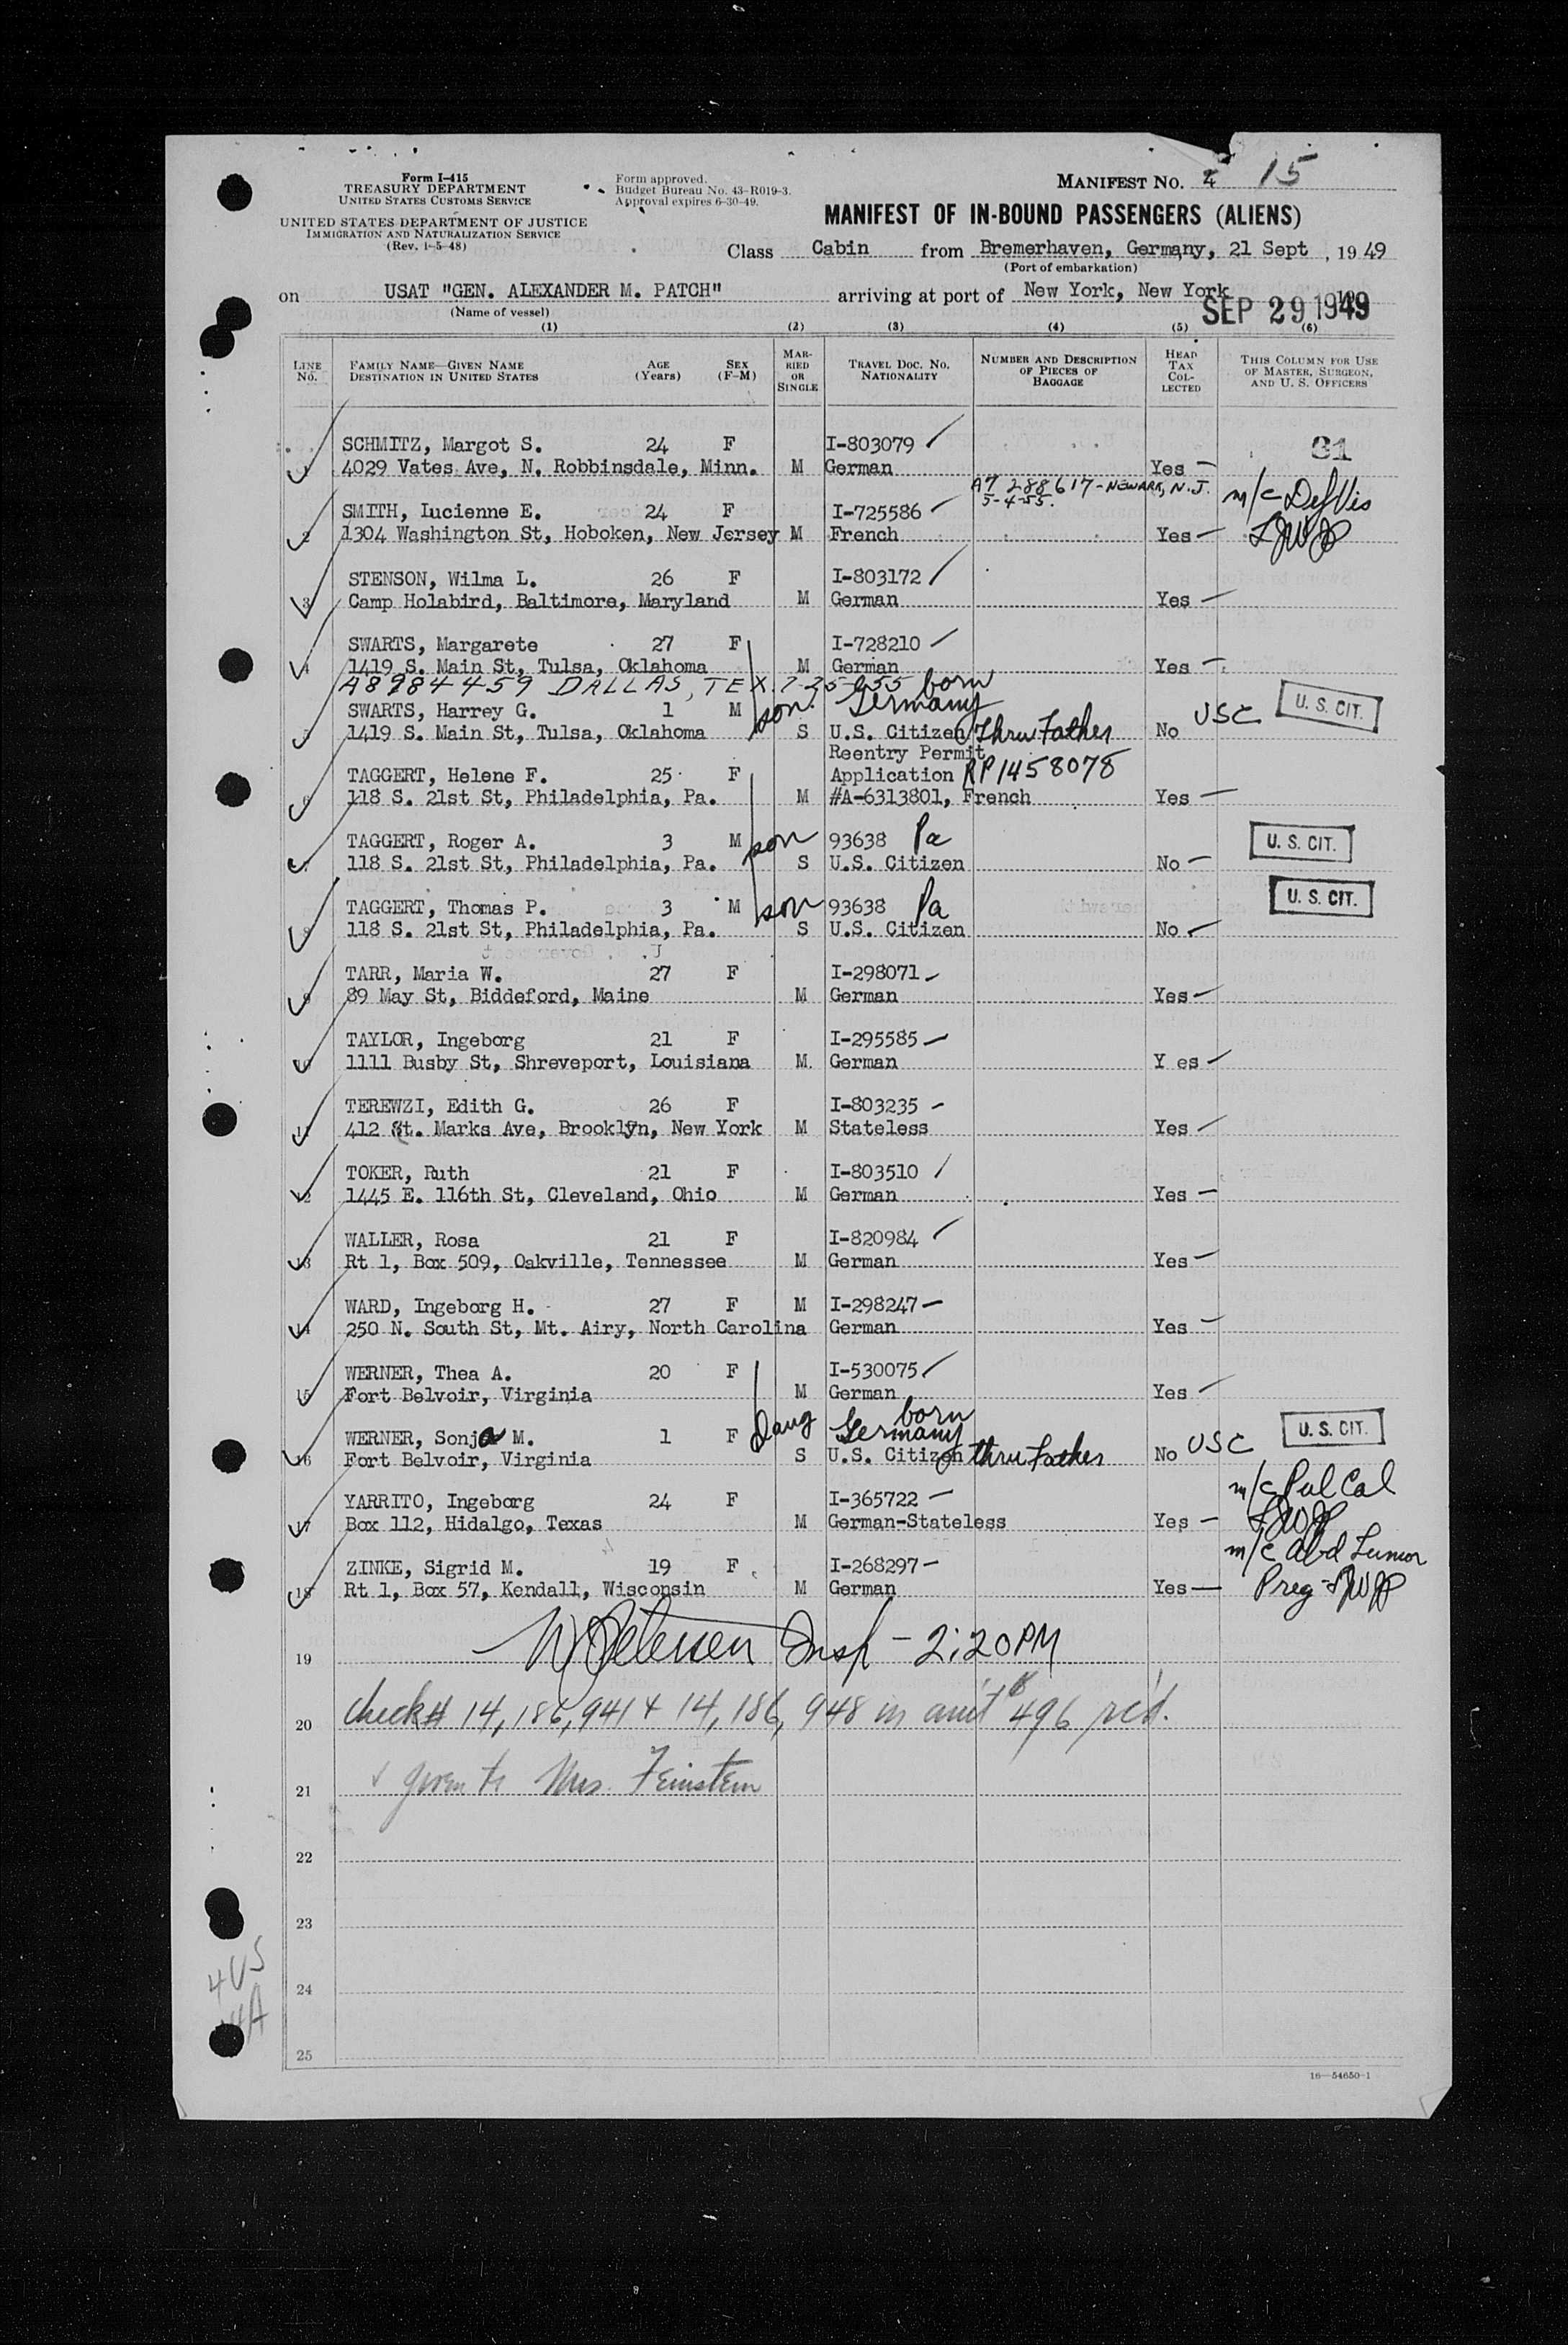 Form I-415
TREASURY DEPARTMENT
UNITED STATES CUSTOMS SERVICE
UNITED STATES DEPARTMENT OF JUSTICE
IMMIGRATION AND NATURALIZATION SERVICE
(Rev. 1-5-48)
Form approved.
Budget Bureau No. 43-R019-3.
Approval expires 6-30-49.
MANIFEST NO. 4 15
MANIFEST OF IN-BOUND PASSENGERS (ALIENS)
Class Cabin from Bremerhaven, Germany, 21 Sept, 1949
(Port of embarkation)
on USAT "GEN. ALEXANDER M. PATCH" arriving at port of New York, New York
(Name of vessel)
SEP 29 1949
(1) (2) (3) (4) (5) (6)
LINE No. FAMILY NAME—GIVEN NAME DESTINATION IN UNITED STATES AGE (Years) SEX (F-M) MARRIED OR SINGLE TRAVEL DOC. NO. NATIONALITY NUMBER AND DESCRIPTION OF PIECES OF BAGGAGE HEAD TAX COLLECTED THIS COLUMN FOR USE OF MASTER, SURGEON, AND U. S. OFFICERS
SCHMITZ, Margot S. 24 F I-803079 31
1 4029 Vates Ave, N. Robbinsdale, Minn. M German Yes
A7 288617-NEWARK, N.J.
5-4-55.
m/c Def Vis
SMITH, Lucienne E. 24 F I-725586
2 1304 Washington St, Hoboken, New Jersey M French Yes
STENSON, Wilma L. 26 F I-803172
3 Camp Holabird, Baltimore, Maryland M German Yes
SWARTS, Margarete 27 F I-728210
4 1419 S. Main St, Tulsa, Oklahoma M German Yes
A8984459 DALLAS, TEX. 7-25-955
born
Germany
SWARTS, Harrey G. 1 M son USC U. S. CIT.
5 1419 S. Main St, Tulsa, Oklahoma S U.S. Citizen thru Father No
Reentry Permit
TAGGERT, Helene F. 25 F Application RP1458078
6 118 S. 21st St, Philadelphia, Pa. M #A-6313801, French Yes
TAGGERT, Roger A. 3 M son 93638 Pa U. S. CIT.
7 118 S. 21st St, Philadelphia, Pa. S U.S. Citizen No
TAGGERT, Thomas P. 3 M son 93638 Pa U. S. CIT.
8 118 S. 21st St, Philadelphia, Pa. S U.S. Citizen No
TARR, Maria W. 27 F I-298071
9 89 May St, Biddeford, Maine M German Yes
TAYLOR, Ingeborg 21 F I-295585
10 1111 Busby St, Shreveport, Louisiana M. German Y es
TEREWZI, Edith G. 26 F I-803235
11 412 St. Marks Ave, Brooklyn, New York M Stateless Yes
TOKER, Ruth 21 F I-803510
12 1445 E. 116th St, Cleveland, Ohio M German Yes
WALLER, Rosa 21 F I-820984
13 Rt 1, Box 509, Oakville, Tennessee M German Yes
WARD, Ingeborg H. 27 F M I-298247
14 250 N. South St, Mt. Airy, North Carolina German Yes
WERNER, Thea A. 20 F I-530075
15 Fort Belvoir, Virginia M German Yes
born
Germany
WERNER, Sonja M. 1 F Daug USC U. S. CIT.
16 Fort Belvoir, Virginia S U.S. Citizen thru Father No
YARRITO, Ingeborg 24 F I-365722 m/c Pul Cal
17 Box 112, Hidalgo, Texas M German-Stateless Yes
ZINKE, Sigrid M. 19 F I-268297 m/c Abd
18 Rt 1, Box 57, Kendall, Wisconsin M German Yes Preg
19 Insp - 2:20 PM
20 check# 14,186,941 & 14,186,948 in amt 496 rc'd.
21 given to Mrs. Feinstein
22
23
24
25
4US
14A
16—54650-1